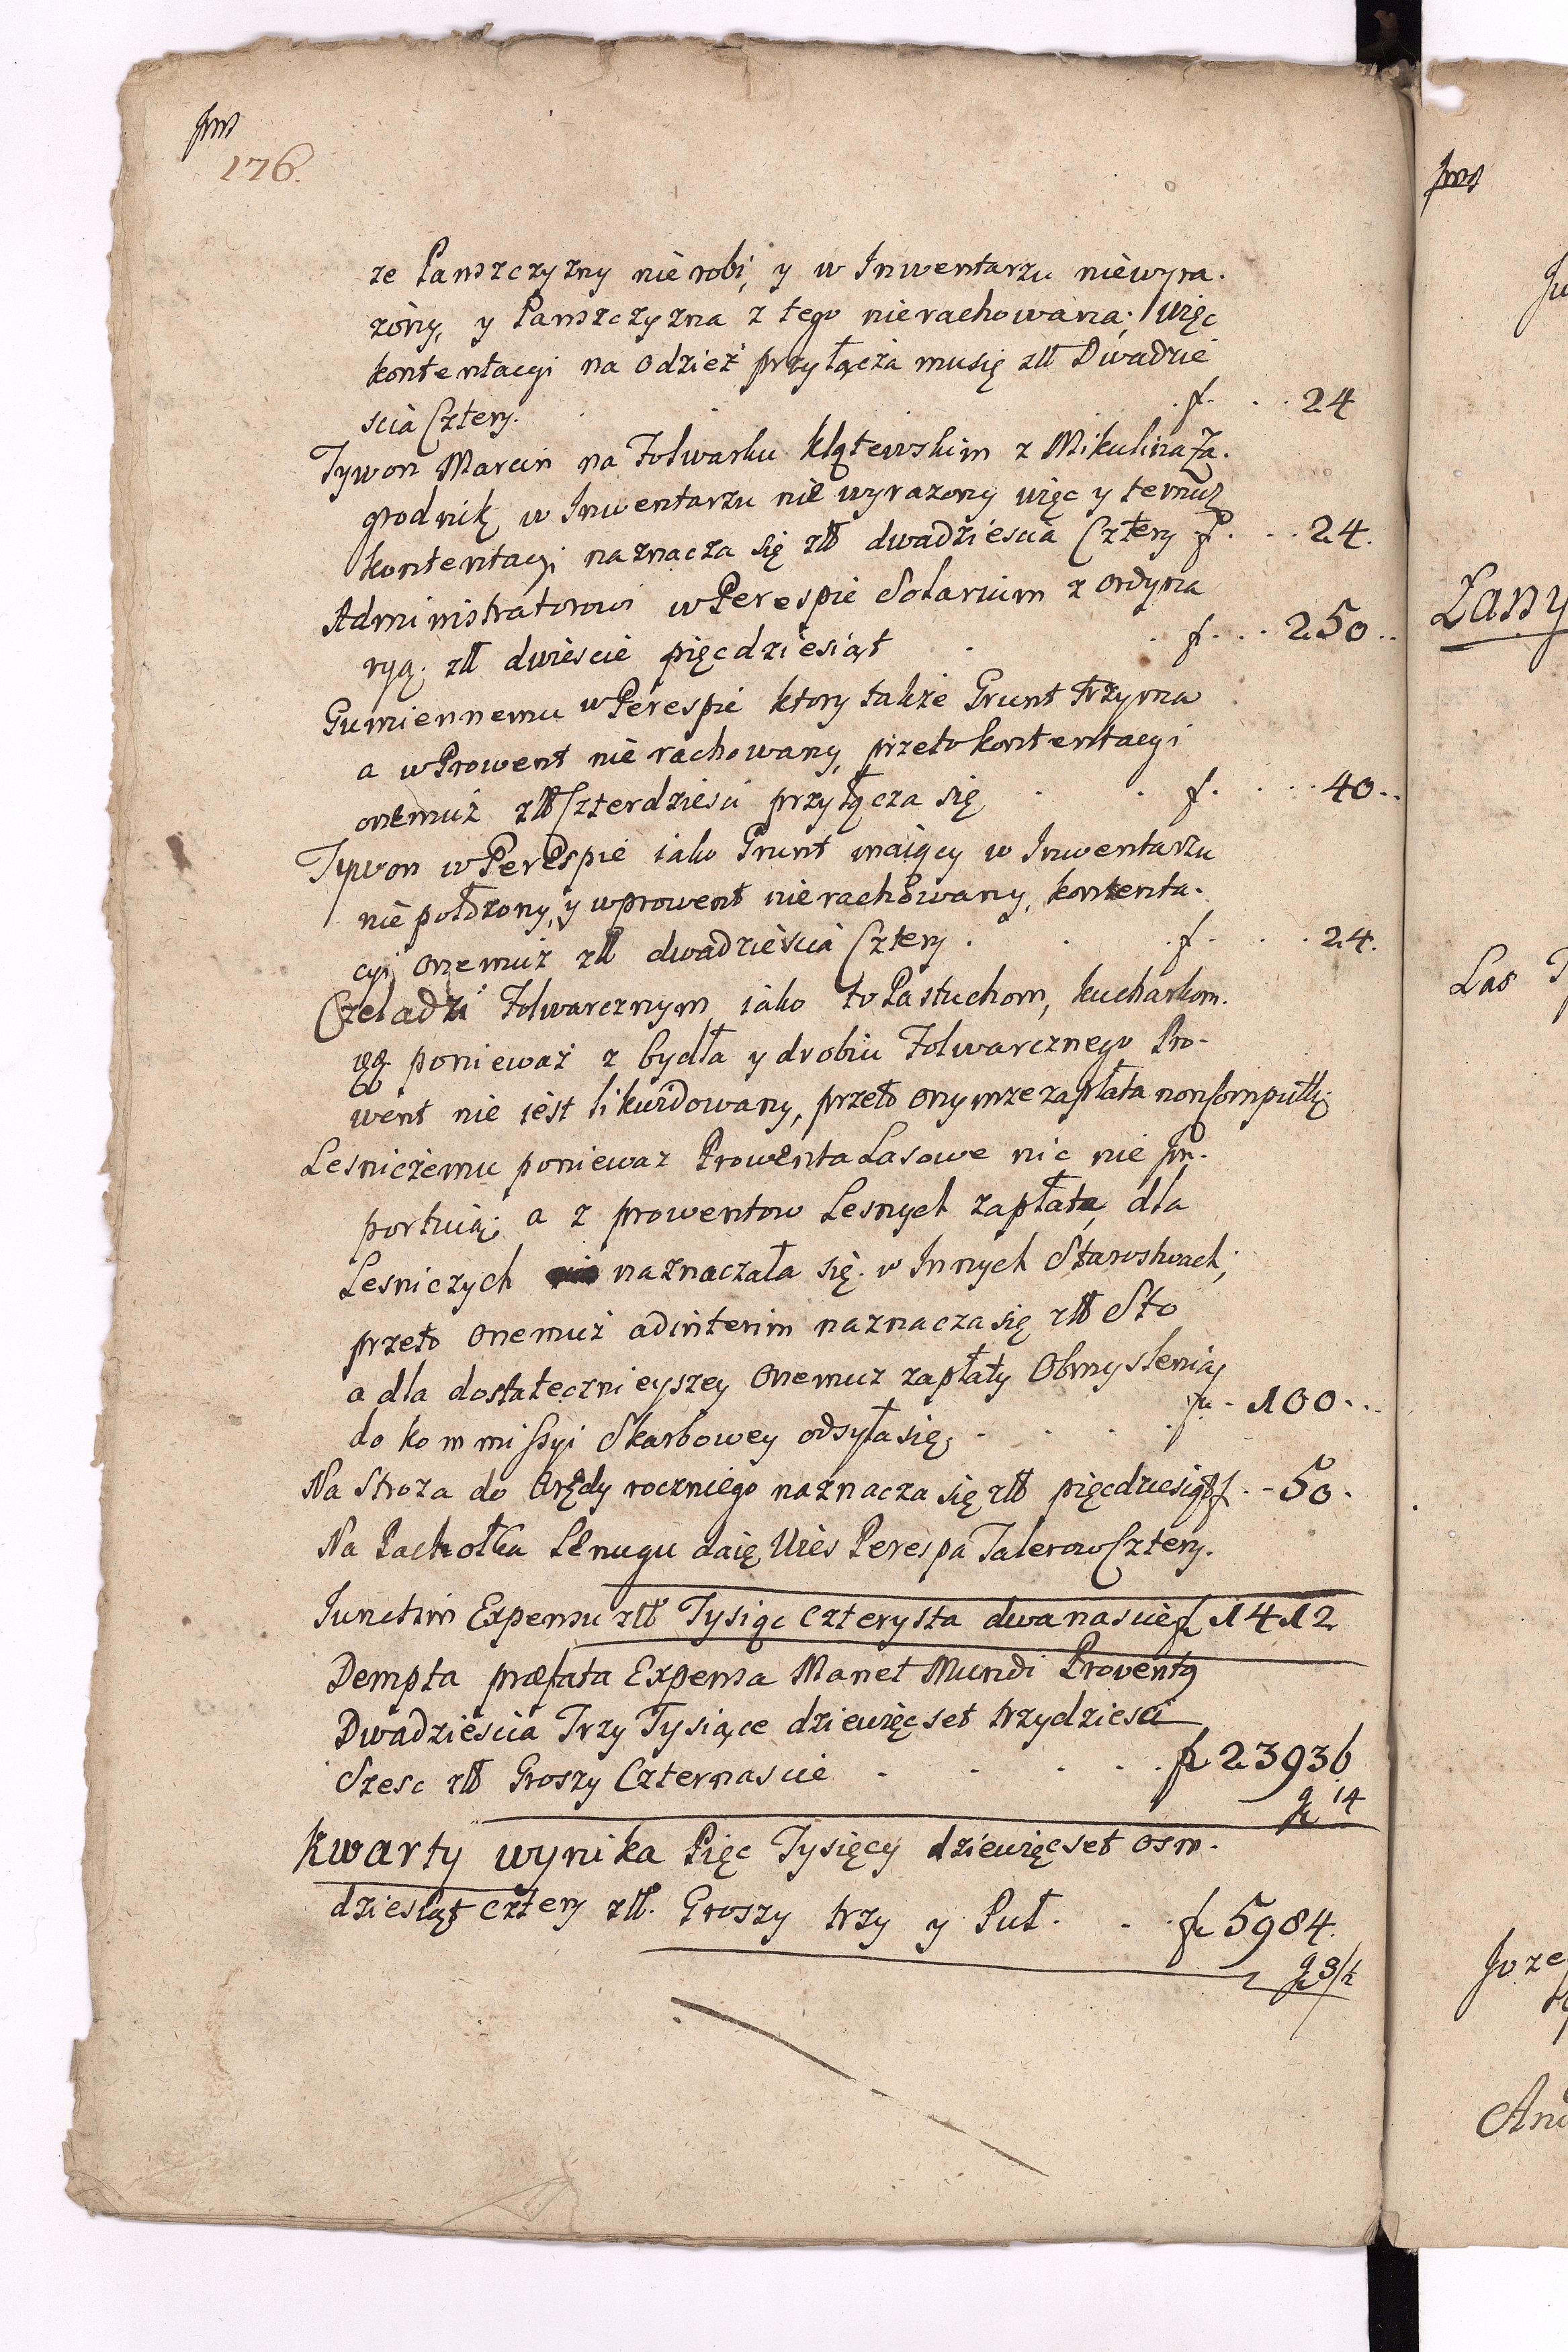 176.
ze Panszczyzny nie robi, y w Inwentarzu niewyra.
zóny, y Panszczyzna z tego nierachowana; więc
kontentacyi na odzież przyłącza musię złł Dwadzie
scia Cztery. f. 24
Tywon Marcin na Folwarku klątewskim z Mikulina Za.
grodnik w Inwentarzu nie wyrazony więc y temuz
kontentacyi naznacza się złł dwadziescia Cztery f. 24.
Administratorowi w Perespie Solarium z ordyna
ryą. złł dwiescie pięcdziesiąt f. 250
Gumiennemu w Perespie ktory także Grunt Trzyma
a w Prowent nie rachowany, przeto kontentacyi
onemuż złł Czterdziesci przyłącza się f. 40
Tywon w Perespie iako Grunt maiący w Inwentarzu
nie połozony, y w prowent nie rachowany, kontenta.
cyi onemuż złł dwadziescia Cztery. f. 24.
Czeladzi Folwarcznym iako to Pastuchom, kucharkom.
ponieważ z bydła y drobiu Folwarcznego Pro-
went nie iest likwidowany, przeto onymze zapłata non
Lesniczemu poniewaz Prowenta Lasowe nic nie
portuią; a z prowentow Lesnych zapłata, dla
Lesniczych naznaczała się w Innych Starostwach;
przeto onemuż adinterim naznacza się złł Sto
a dla dostatecznieyszey onemuz zapłaty Obmyslenia
do kommissyi Skarbowey odsyła się. f. 100
Na Stroza do Grędy roczniego naznacza się złł pięcdziesiąt f. 50.
Na Pachołka daię Wies Perespa Talerow Cztery.
Iunctim Expensu złł Tysiąc czterysta dwanascie f 1412
Dempta præfata Expensa Manet Mundi Proventq
Dwadziescia Trzy Tysiące dziewięcset trzydziesci
Szesc złł Groszy Czternascie f 23936
g 14
Kwarty wynika Pięc Tysięcy dziewięcset osm.
dziesiąt cztery złł. Groszy trzy y Puł. f 5984.
g 3/½
Lany
Las